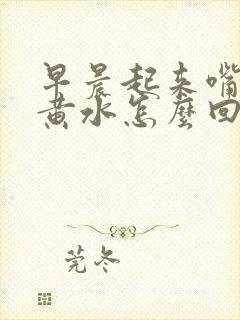 早晨起来嘴
黄水怎麼回
莞冬